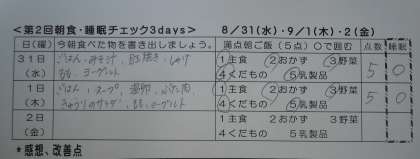 <第2回朝食・睡眠チェック3days> 8/31(水)・9/1(木)・2(金)
日(曜) 今朝食べた物を書き出しましょう。 満点朝ご飯(5点)○で囲む 点数 睡眠
31日(水) ごはん・みそ汁、 1主食 2おかず 3野菜 5 0
ヨーグルト 4くだもの 5乳製品
1日(木) ごはん、スープ、 1主食 2おかず 3野菜 5 0
きゅうりのサラダ、ヨーグルト 4くだもの 5乳製品
2日(金) 1主食 2おかず 3野菜
4くだもの 5乳製品
*感想、改善点